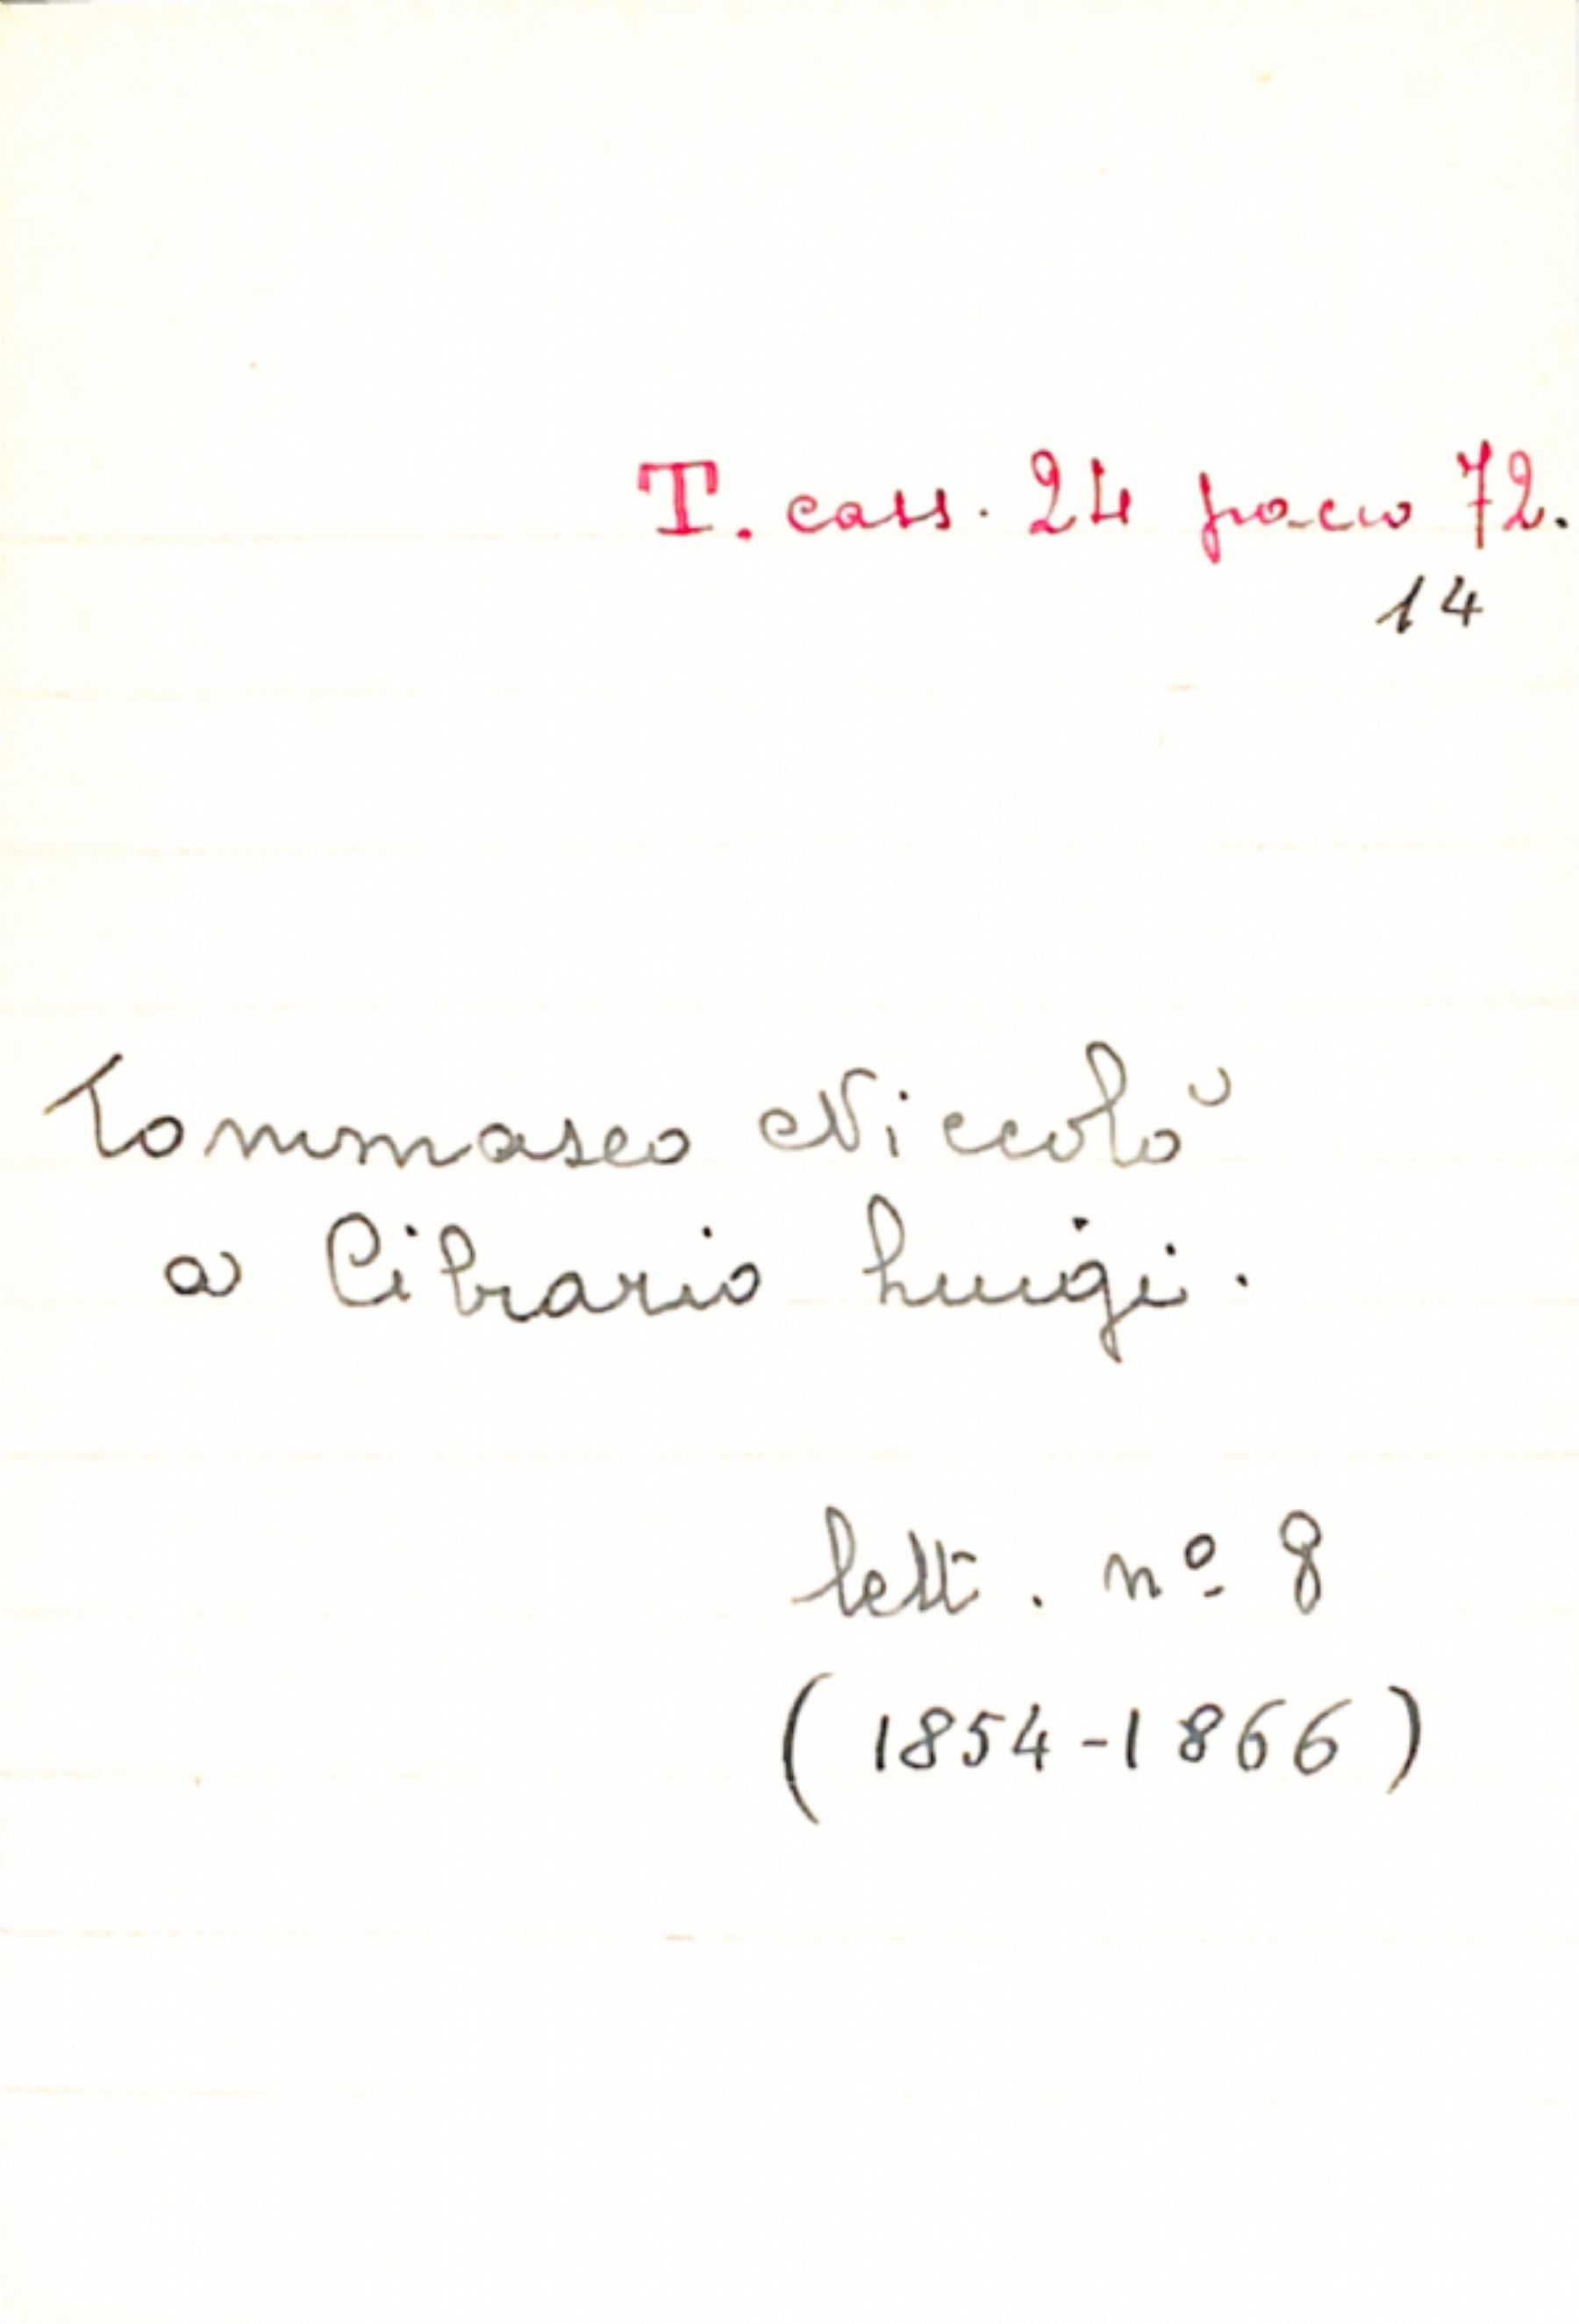 T. cass. 24 pacco 72.
14
Tommaseo Niccolò
a Cibrario Luigi.
lett. nº 8
(1854-1866)